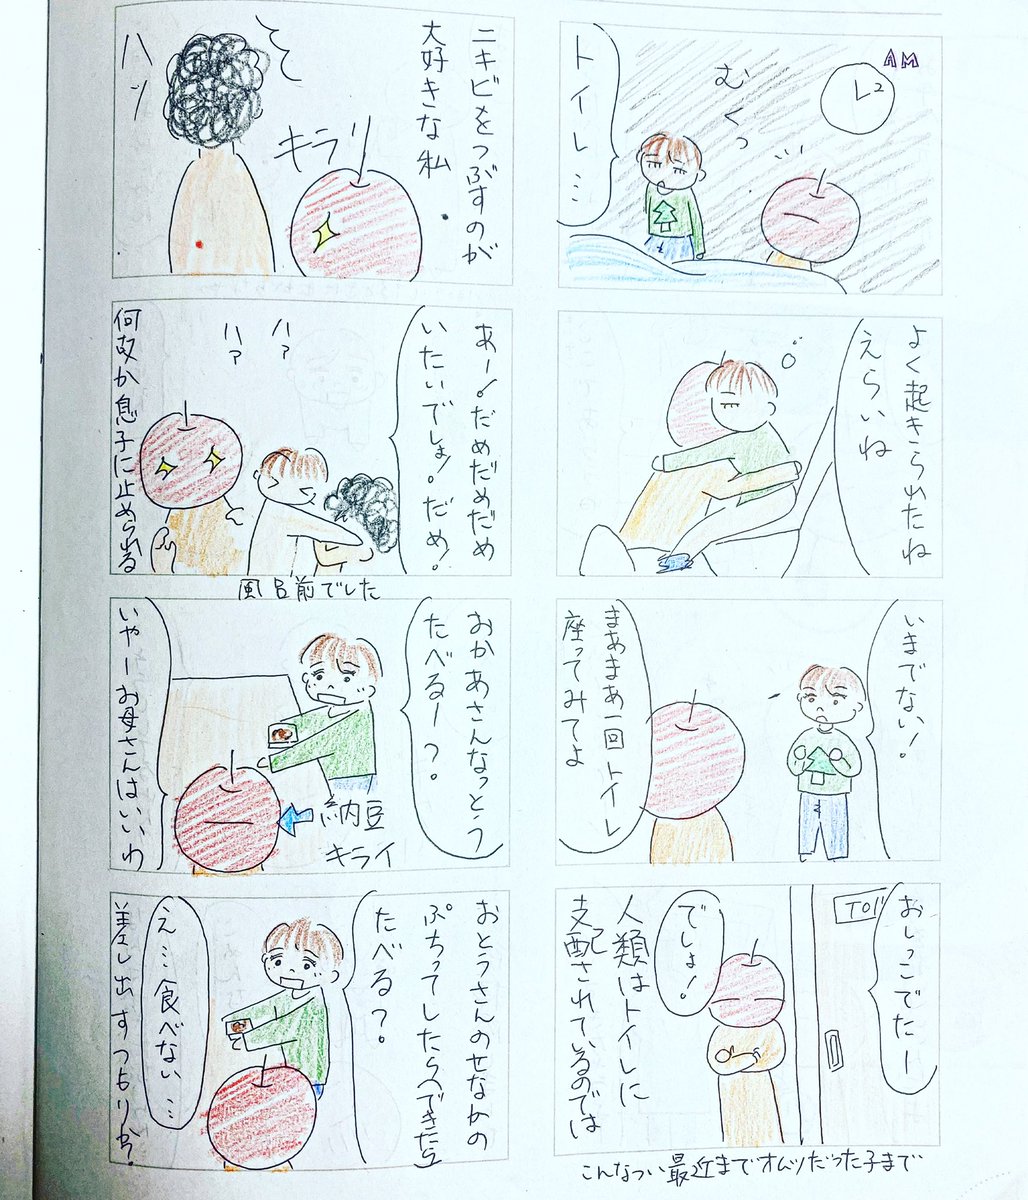 AM
2
むくっ
トイレ…
よく起きられたね
えらいね
いまでない!
まあまあ一回トイレ
座ってみてよ
おしっこでたー
TOI
でしょ!
人類はトイレに
支配されているのでは
こんなつい最近までオムツだった子まで
ニキビをつぶすのが
大好きな私
キラリ
ハッ
あー!だめだめだめ
いたいでしょ!だめ!
ハァ
ハァ
何故か息子に止められる
風呂前でした
おかあさんなっとう
たべるー?
納豆
キライ
いやーお母さんはいいわ
おとうさんのせなかの
ぷちってしたらへできたら
たべる?
え…食べない…
差し出すつもりか?